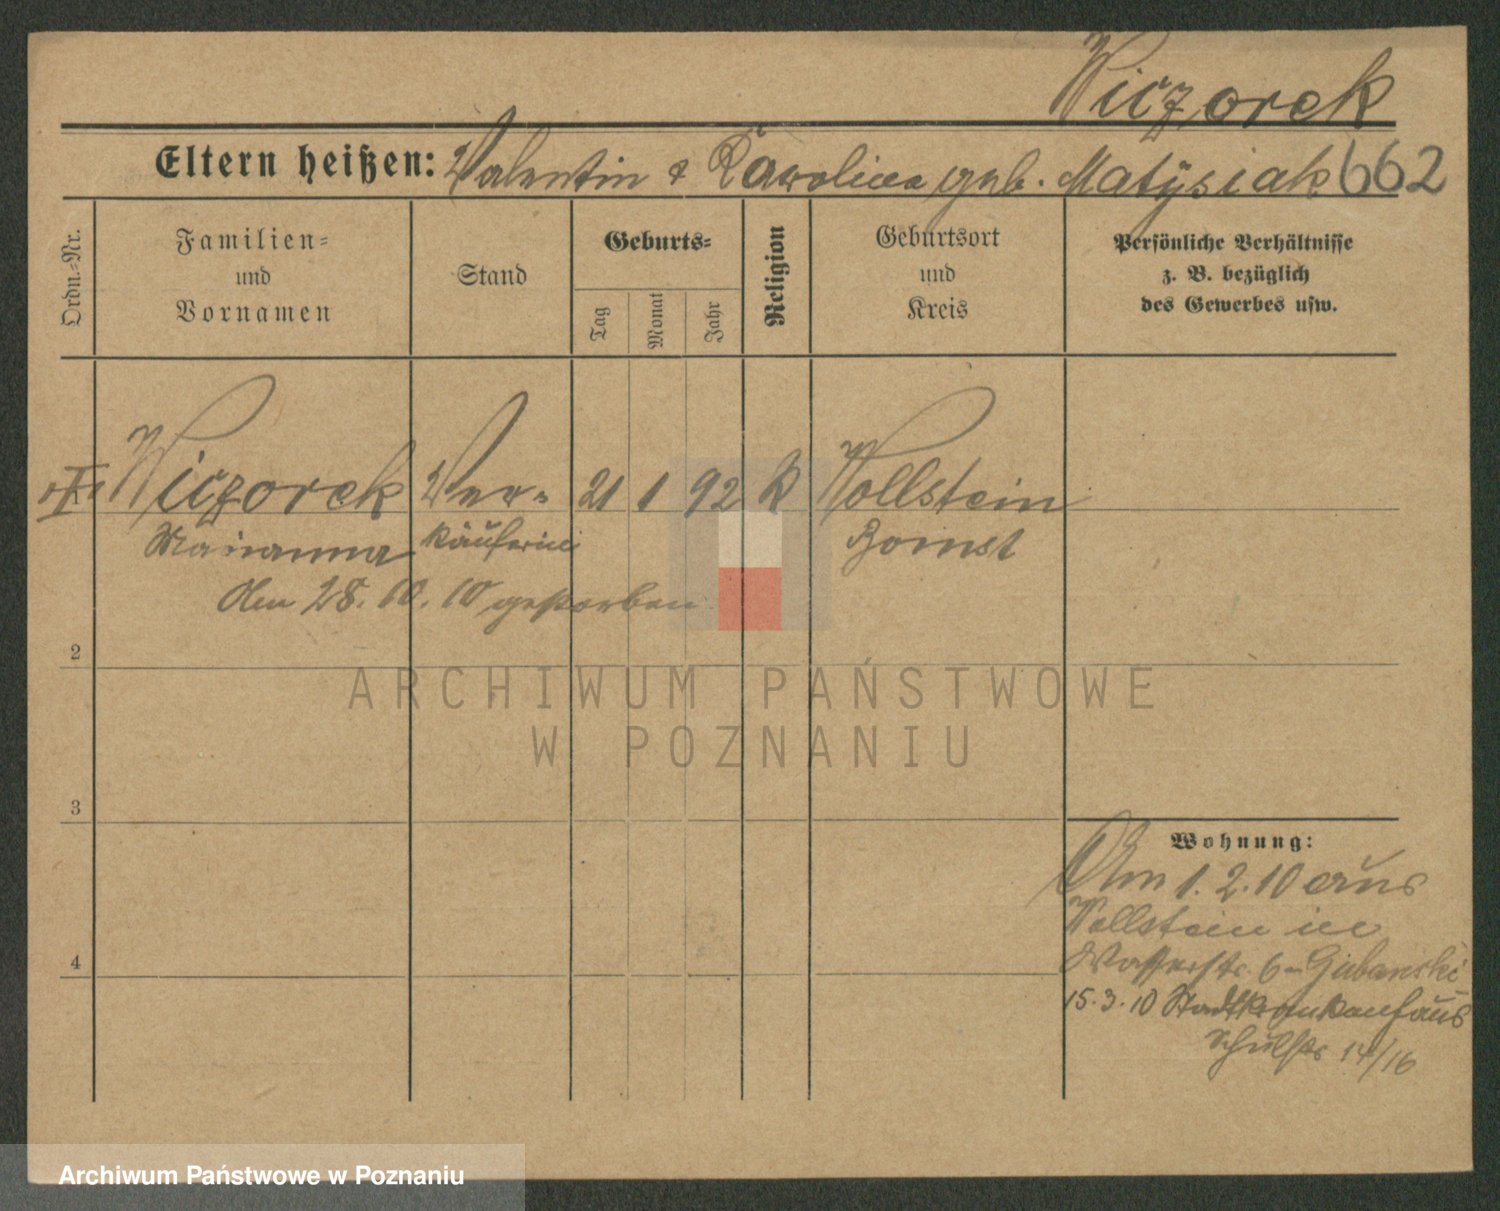 Wiczorek
Eltern heißen: Valentin & Karolina geb. Matysiak 662
Ordn.-Nr.
Familien-
und
Vornamen
Stand
Geburts-
Tag
Monat
Jahr
Religion
Geburtsort
und
Kreis
Persönliche Verhältnisse
z. B. bezüglich
des Gewerbes usw.
Wiczorek Ver- 21 1 92 K Wollstein
Marianna käuferin Bomst
Am 28. 10. 10 gestorben
2
3
4
Wohnung:
Am 1. 2. 10 aus
Wollstein in
Wasserstr. 6 Gubanski
15. 3. 10 Stadtkrankenhaus
Schulstr 14/16
ARCHIWUM PAŃSTWOWE
W POZNANIU
Archiwum Państwowe w Poznaniu